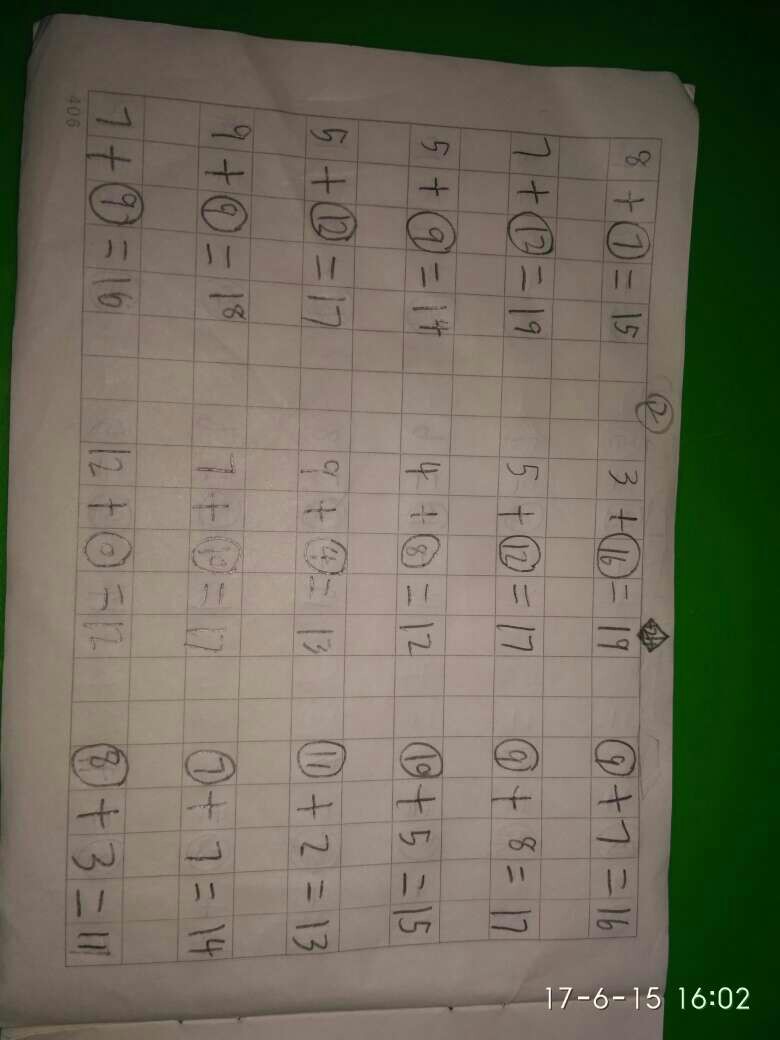 ②
8+⑦=15 3+⑯=19 ⑨+7=16
7+⑫=19 5+⑫=17 ⑨+8=17
5+⑨=14 4+⑧=12 ⑩+5=15
5+⑫=17 9+④=13 ⑪+2=13
9+⑨=18 7+⑩=17 ⑦+7=14
7+⑨=16 12+⓪=12 ⑧+3=11
406
17-6-15 16:02